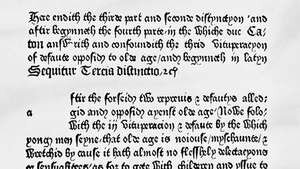 Hare endith the thirde part and seconde distynctyon · and
after begynneth the fourth parte·in the whiche due Ca-
ton answerith and confoundith the thrid vituperacyon
of defaute opposid to olde age/ and begynneth in latyn
Sequitur Tercia distinctio/&c̄
a
ftir the forseid two repreuis & defautys alled-
gid and opposid ayenst olde age· Nowe folo-
with the iij vituperacyon & defaute by the which
yong men seyne·that olde age is noiouse/myschaunte/&
wretchid by cause it hath almost no flesshely delectacyons
or sensualitees/as for to gete with children and yssue to